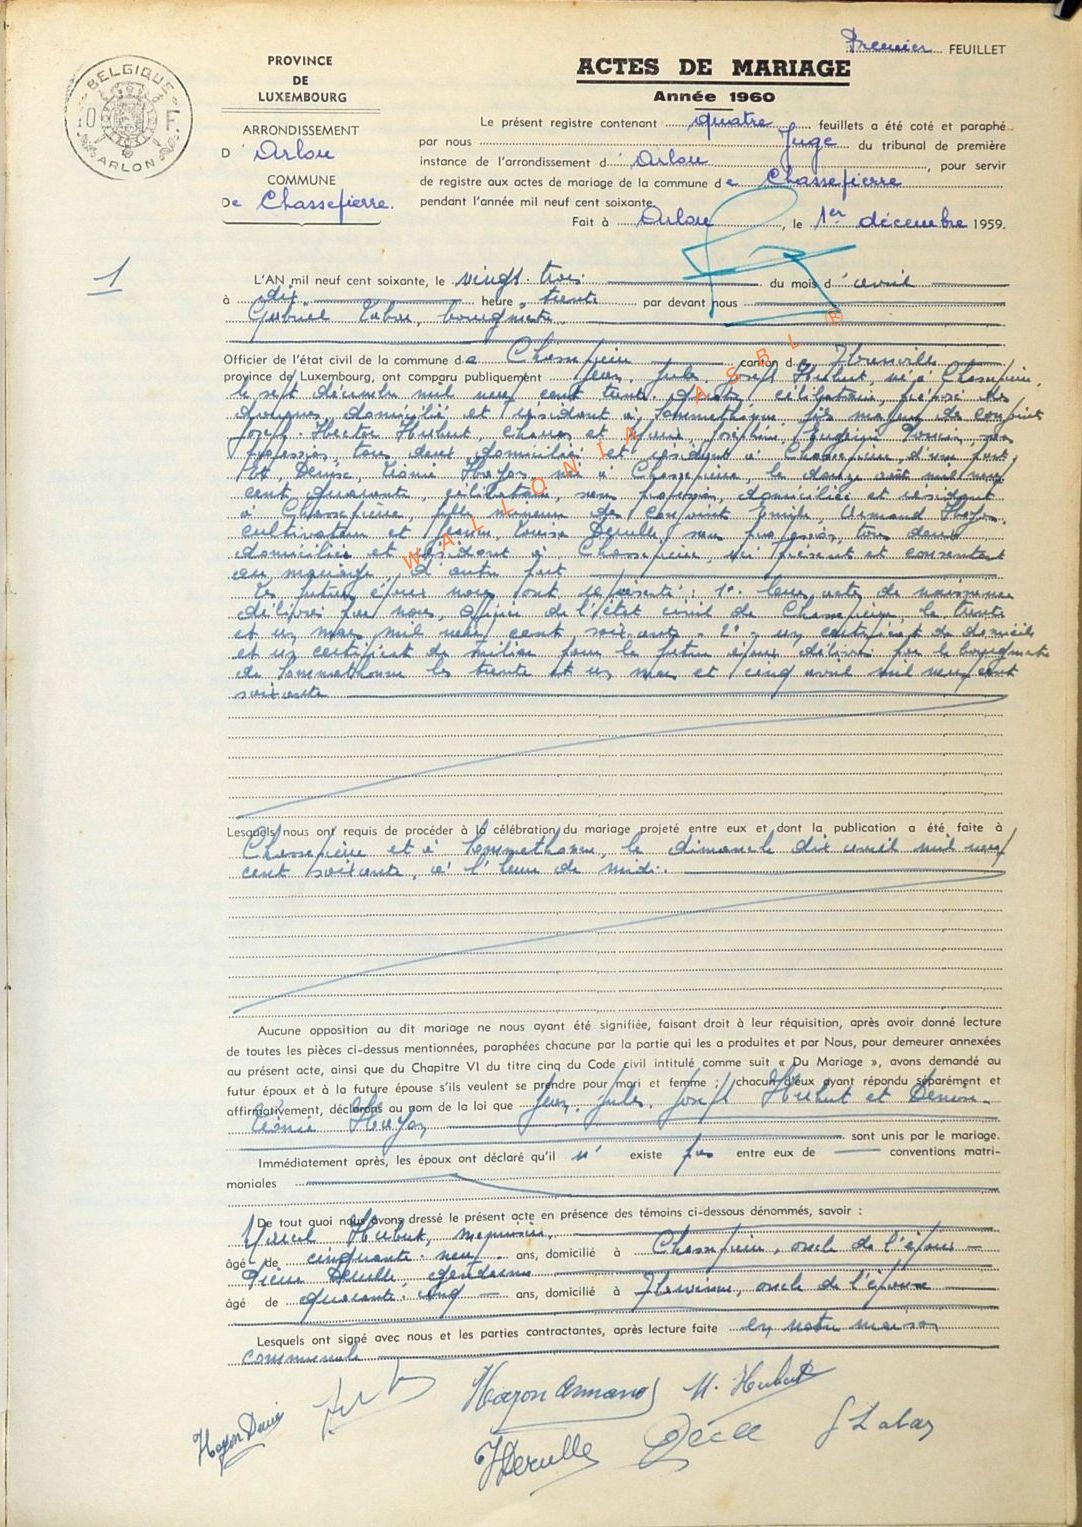 Premier FEUILLET
BELGIQUE
ARLON
PROVINCE
DE
LUXEMBOURG
ARRONDISSEMENT
D'Arlon
COMMUNE
De Chassepierre.
ACTES DE MARIAGE
Année 1960
Le présent registre contenant quatre feuillets a été coté et paraphé
par nous Juge du tribunal de première
instance de l'arrondissement d'Arlon, pour servir
de registre aux actes de mariage de la commune de Chassepierre
pendant l'année mil neuf cent soixante.
Fait à Arlon, le 1er décembre 1959.
1
L'AN mil neuf cent soixante, le vingt trois du mois d'avril
à dix heures trente par devant nous
Gabriel Labar, bourgmestre
Officier de l'état civil de la commune de Chassepierre canton de Florenville
province de Luxembourg, ont comparu publiquement Jean, Jules, Joseph Hubert, né à Chassepierre,
le sept décembre mil neuf cent trente, célibataire, préposé des
douanes domicilié et résidant à Sommethonne fils majeur de conjoints
Joseph Hector Hubert, et Joséphine Eugénie, sans
profession, tous deux domiciliés et résidant à Chassepierre, d'une part,
Et, Denise, Léonie Hayon née à Chassepierre, le douze août mil neuf
cent quarante, célibataire, sans profession, domiciliée et résidant
à Chassepierre fille mineure de conjoints Emile, Armand Hayon
cultivateur et Louise Derulle, sans profession, tous deux
domiciliés et résidant à Chassepierre, ici présent et consentant
au mariage, d'autre part
Les futurs époux nous ont représenté : 1° leurs actes de naissance
délivrés par nous, officier de l'état civil de Chassepierre, le trente
et un mars mil neuf cent soixante - 2° - un certificat de domicile
et un certificat de milice pour le futur époux délivré par le bourgmestre
de Sommethonne les trente et un mars et cinq avril mil neuf cent
soixante
Lesquels nous ont requis de procéder à la célébration du mariage projeté entre eux et dont la publication a été faite à
Chassepierre et à Sommethonne, le dimanche dix avril mil neuf
cent soixante, à l'heure de midi.
Aucune opposition au dit mariage ne nous ayant été signifiée, faisant droit à leur réquisition, après avoir donné lecture
de toutes les pièces ci-dessus mentionnées, paraphées chacune par la partie qui les a produites et par Nous, pour demeurer annexées
au présent acte, ainsi que du Chapitre VI du titre cinq du Code civil intitulé comme suit « Du Mariage », avons demandé au
futur époux et à la future épouse s'ils veulent se prendre pour mari et femme ; chacun d'eux ayant répondu séparément et
affirmativement, déclarons au nom de la loi que Jean, Jules, Joseph Hubert et Denise
Léonie Hayon
sont unis par le mariage.
Immédiatement après, les époux ont déclaré qu'il n'existe pas entre eux de conventions matri-
moniales
De tout quoi nous avons dressé le présent acte en présence des témoins ci-dessous dénommés, savoir :
Marcel Hubert, menuisier,
âgé de cinquante-neuf ans, domicilié à Chassepierre, oncle de l'époux
Derulle, gendarme
âgé de quarante-cinq ans, domicilié à oncle de l'épouse
Lesquels ont signé avec nous et les parties contractantes, après lecture faite en notre maison
communale
Hayon Denise
Hayon Armand
M. Hubert
Derulle
G Labar
WALLONIA ASBL ®